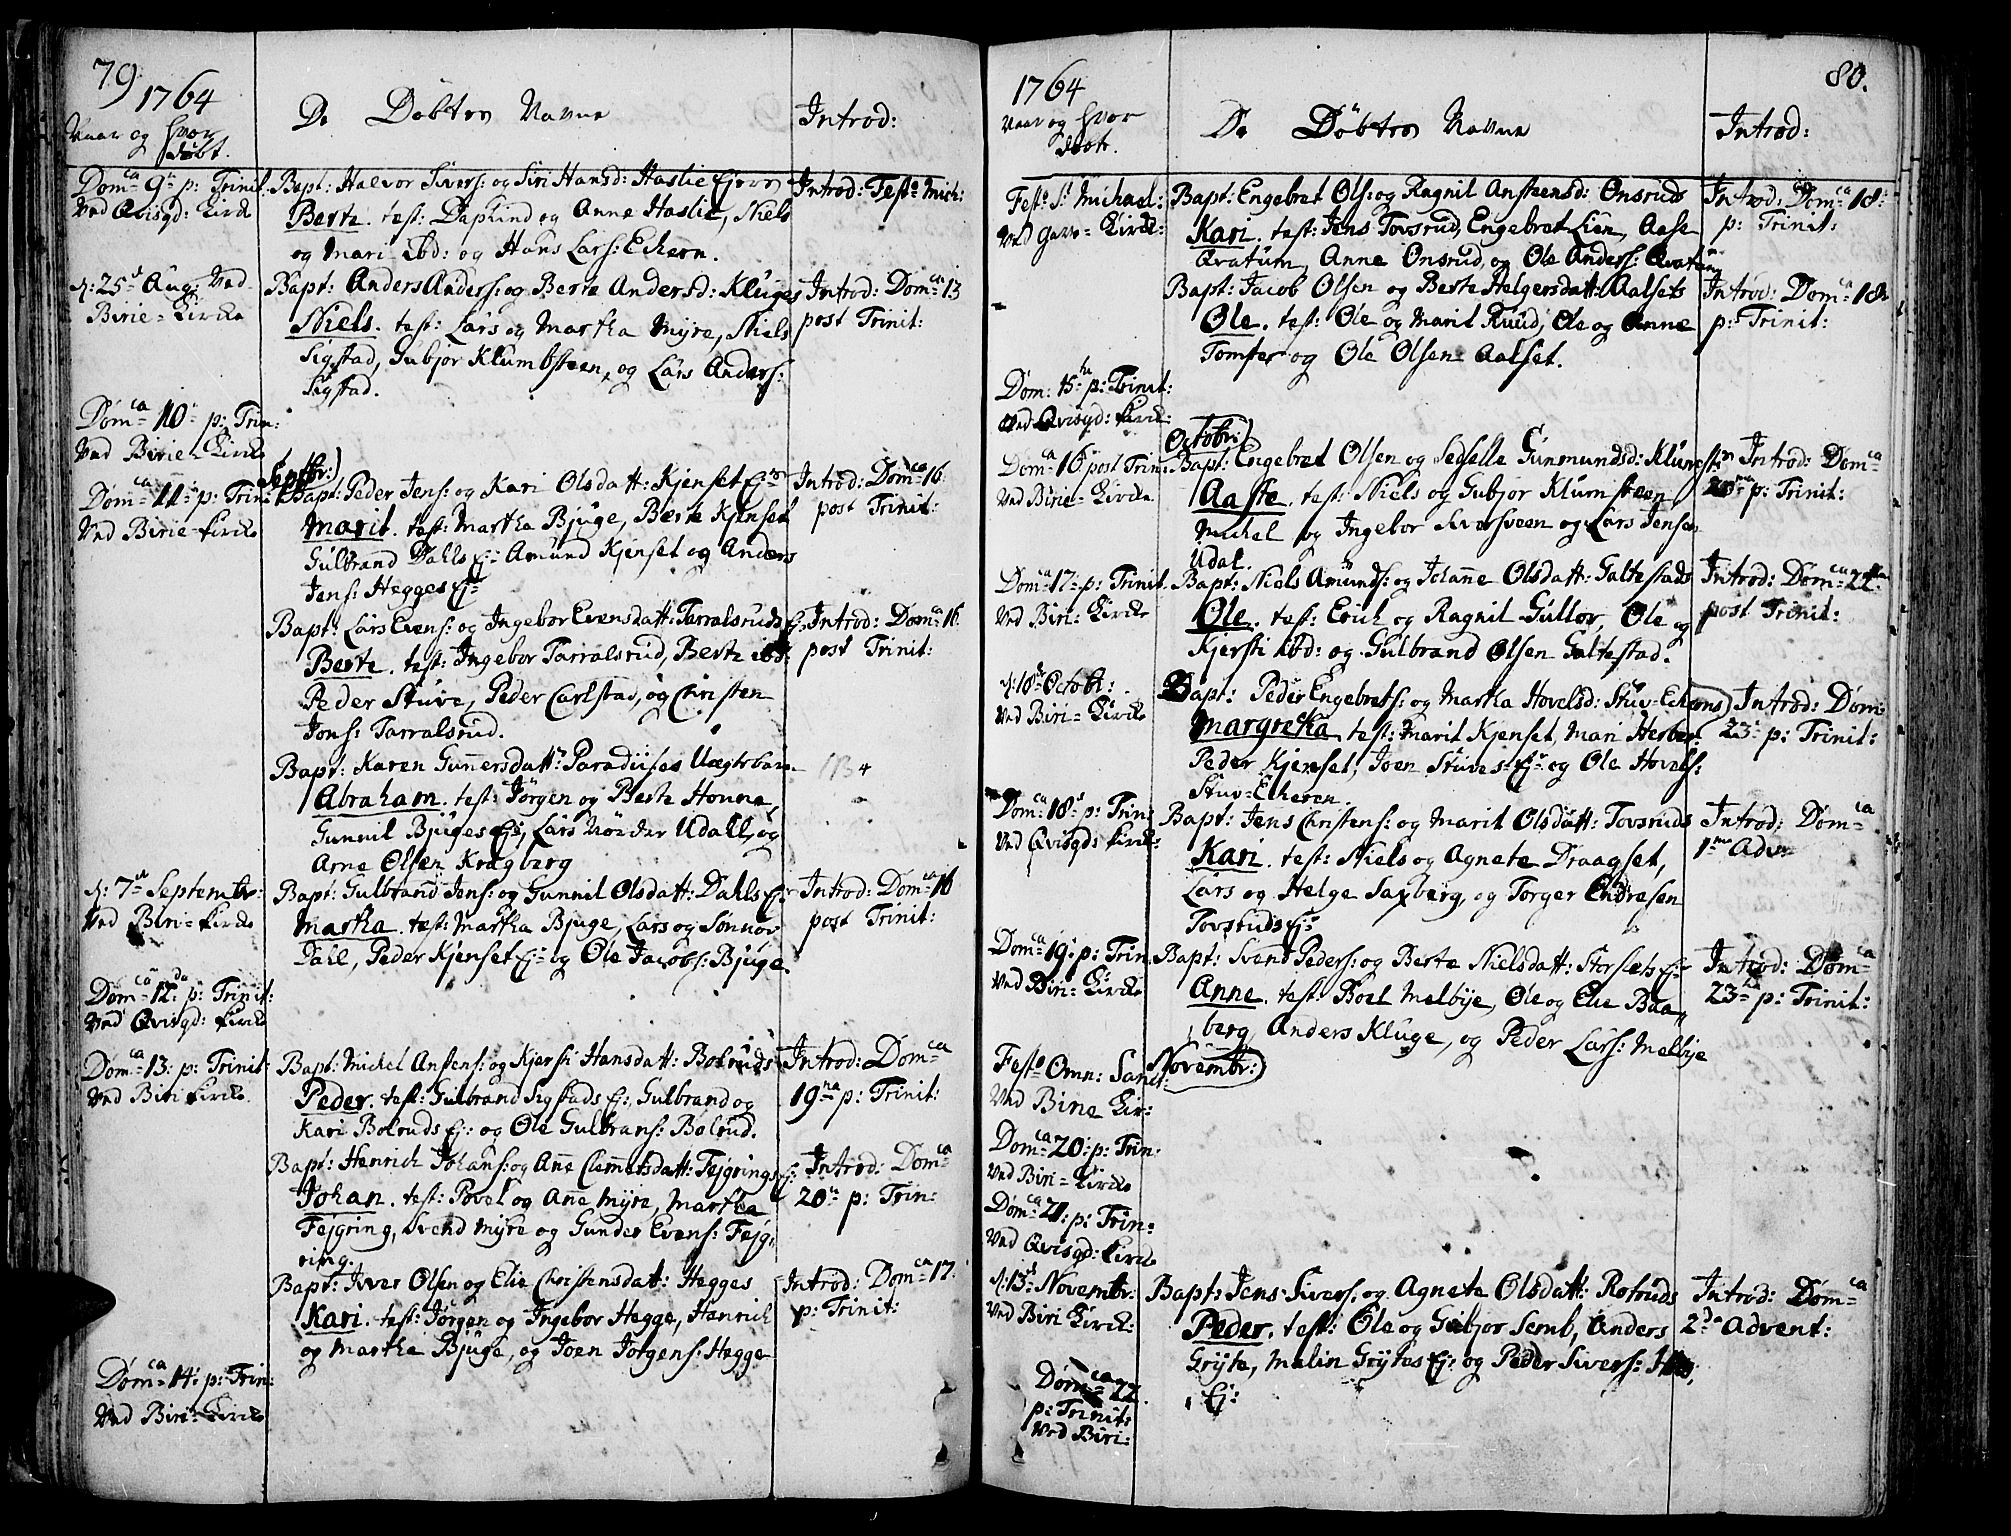 79
1764
Naar og hvor
døbt.
De Døbtes Navne
Introd:
Domca 9na p: Trinit.
Ved Qvisgd: Kirche
Bapt: Halvor Sivers: og Siri Hansd: Haslie Ejere
Berte. test: Daphind og Anne Haslie, Niels
og Mari ibd: og Hans Lars: Echern.
Introd: Festo Mich:
d: 25de Aug: Ved
Birie-Kirche
Bapt: Anders Anders: og Berte Andersd: Kluges
Niels. test: Lars og Martha Myre, Niels
Sigstad, Gubjor Klumbsteen, og Lars Anders:
Sigstad.
Introd: Domca 13
post Trinit:
Domca 10 p: Trin:
Ved Birie-Kirche
Domca 11 p: Trin:
Ved Birie-Kirche
Septbr:)
Bapt: Peder Jens: og Kari Olsdatt: Kjenset Ejer
Marit. test: Martha Bjuge, Berte Kjenset
Gulbrand Dahls Ej: Amund Kjenset og Anders
Jens: Hegges Ej:
Introd: Domca 16
post Trinit:
Bapt: Lars Evens: og Ingebor Evensdatt: Tarralsruds Ej:
Berte. test: Ingebor Tarralsrud, Berte ibd:
Peder Stuve, Peder Carlstad, og Christen
Jons: Tarralsrud.
Introd: Domca 16
post Trinit:
Bapt: Karen Gunnersdattr Paradiises Uægtebarn
Abraham. test: Jörgen og Berte Honne,
Gunnil Bjuges Ej:, Lars Nörder Udall, og
Arne Olsen Kragberg
d: 7de Septembr:
Ved Biri-Kirche
Bapt: Gulbrand Jens: og Gunnil Olsdatt: Dahls Ej:
Martha. test: Martha Bjuge, Lars og Sønnov
Dahl, Peder Kjenset Ej: og Ole Jacobs: Bjuge.
Introd: Domca 16
post Trinit:
Domca 12da p: Trinit:
Ved Qvisgd: Kirche
Domca 13: p: Trinit:
Ved Biri Kirche.
Bapt: Michel Ansten: og Kjersti Hansdatt: Bolruds
Peder. test: Gulbrand Sigstads Ej:, Gulbrand og
Kari Bolruds Ej: og Ole Gulbrans: Bolrud.
Introd: Domca
19na p: Trinit:
Bapt: Henrich Johans: og Anne Clemetsdatt: Fejgrings Ej:
Johan. test: Povel og Anne Myre, Martha
Fejgring, Svend Myre og Gunder Evens: Fejg,
ring.
Introd: Domca
20 p: Trin:
Bapt: Iver Olsen og Elie Christensdatt: Hegges
Kari. test: Jörgen og Ingebor Hegge, Henrich
og Martha Bjuge, og Joen Jorgens: Hegge
Introd: Domca 17.
p: Trinit:
Domca 14: p: Trin:
Ved Biri-Kirche
1764
Naar og hvor
døbt.
De Döbtes Navne
Introd:
80.
Festo St Michael:
Ved Kirche:
Bapt: Engebret Ols: og Ragnil Ansteensd: Onsrud
Kari. test: Jens Tovsrud, Engebret Lien, Aase
Qvatum, Anne Onsrud, og Ole Anders: Qvatum
Introd: Domca 18:
p: Trinit:
Bapt: Jacob Olsen og Berte Helgersdatt: Aalsets
Ole. test: Ole og Marit Ruud, Ole og Anne
Tomter og Ole Olsen Aalset.
Introd: Domca 18
p: Trinit:
Dom: 15 p: Trinit:
Ved Qvisgd: Kirch:
Octobr:)
Domca 16 post Trin:
Ved Birie-Kirche
Bapt: Engebret Olsen og Sedselle Gunmundsd: Klumsten
Aaste. test: Niels og Gubjor Klumsteen
Michel og Ingebor Siversveen og Lars Jensen
Udal.
Introd: Domca
20 p: Trinit:
Domca 17 p: Trinit.
Ved Biri-Kirche
Bapt: Niels Amunds: og Johanne Olsdatt: Galtestads
Ole. test: Erich og Ragnil Gullor, Ole og
Kjersti ibd: og Gulbrand Olsen Galtestad.
Introd: Domca 22
post Trinit:
d: 18de Octobr:
Ved Biri-Kirche
Bapt: Peder Engebrets: og Martha Hovelsd: Stuv-Echerns)
Margretha. test: Marit Kjenset, Mari Herber.
Peder Kjenset, Joen Stuves Ej: og Ole Hovels:
Stuv-Echeren.
Introd: Dom:
23 p: Trinit:
Domca 18 p: Trin:
Ved Qvisgd: Kirch:
Bapt: Jens Christens: og Marit Olsdatt: Tovsruds
Kari. test: Niels og Agnete Draagset,
Lars og Helge Saxberg, og Torger Endresen
Tovsruds Ej:
Introd: Domca
1ma Adv
Domca 19: p: Trin.
Ved Biri-Kirche
Bapt: Svend Peders: og Berte Nielsdatt: Storslets Ej:
Anne. test: Boel Melbye, Ole og Elie Baa,
berg Anders Kluge, og Peder Lars: Melbye
Introd: Domca
23 p: Trinit:
Festo Omn: Sanct:
Ved Birie Kir:
Novembr:)
Domca 20: p: Trin:
Ved Biri-Kirche
Domca 21: p: Trin:
Ved Qvisgd: Kirche
d: 13de Novembr:
Ved Biri Kirch:
Bapt: Jens Sivers: og Agnete Olsdatt: Rotruds
Peder. test: Ole og Gubjor Semb, Anders
Gryte, Malin Grytes Ej: og Peder Sivers:
Ej:
Introd: Domca
2da Advent:
Domca 22
p: Trinit:
Ved Biri: